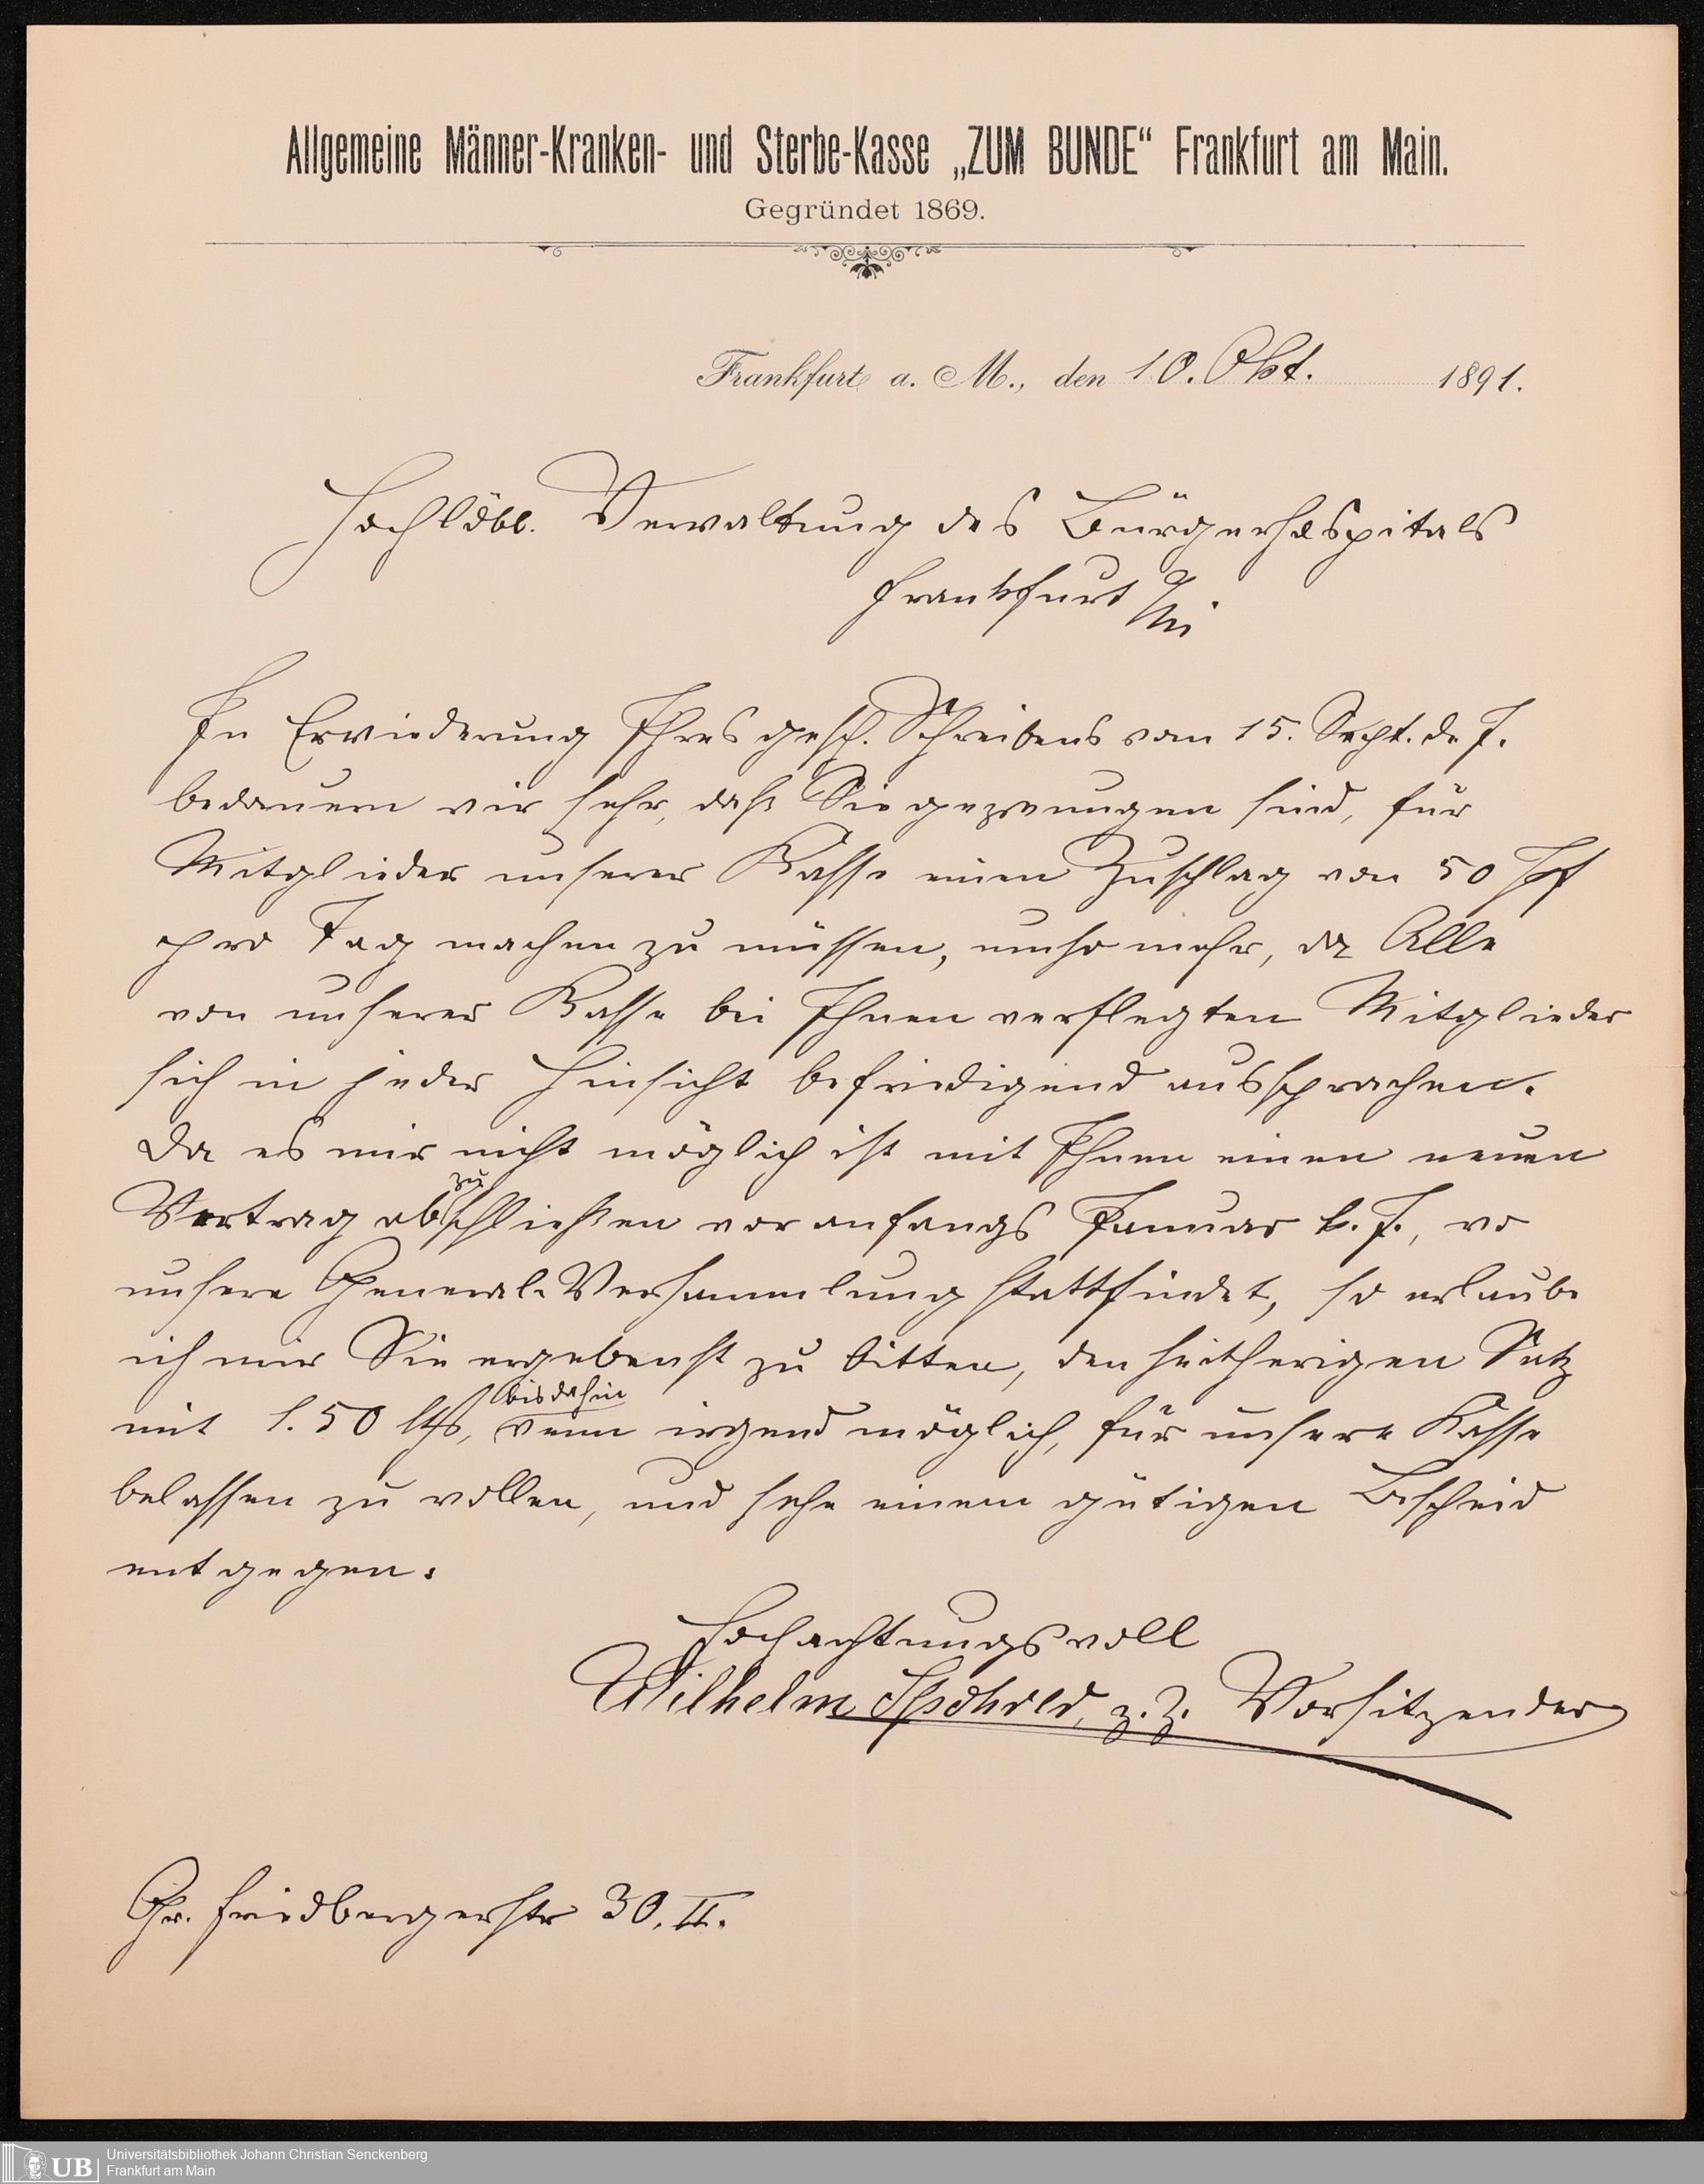 Allgemeine Männer-Kranken- und Sterbe-Kasse „ZUM BUNDE“ Frankfurt am Main.
Gegründet 1869.
Frankfurt a. M., den 10. Okt. 1891.
Hochlöbl. Verwaltung des Bürgerhospitals
Frankfurt a/M
In Erwiederung Ihres gesch. Schreibens vom 15. Sept. d. J.
bedauern wir sehr, daß Sie gezwungen sind, für
Mitglieder unserer Kasse einen Zuschlag von 50 Pf
pro Tag machen zu müssen, umso mehr, da Alle
von unserer Kasse bei Ihnen verflegten Mitglieder
sich in jeder Hinsicht befriedigend aussprachen.
Da es mir nicht möglich ist mit Ihnen einen neuen
Vertrag abzuschließen vor anfangs Januar k. J., wo
unsere General-Versammlung stattfindet, so erlaube
ich mir Sie ergebenst zu bitten, den seitherigen Satz
bis dahin
mit 1.50 M, wenn irgend möglich, für unsere Kasse
belassen zu wollen, und sehe einem gütigen Bescheid
entgegen.
Hochachtungsvoll
Wilhelm z. Z. Vorsitzender
Gr. Friedbergerstr 30. II.
UB
Universitätsbibliothek Johann Christian Senckenberg
Frankfurt am Main